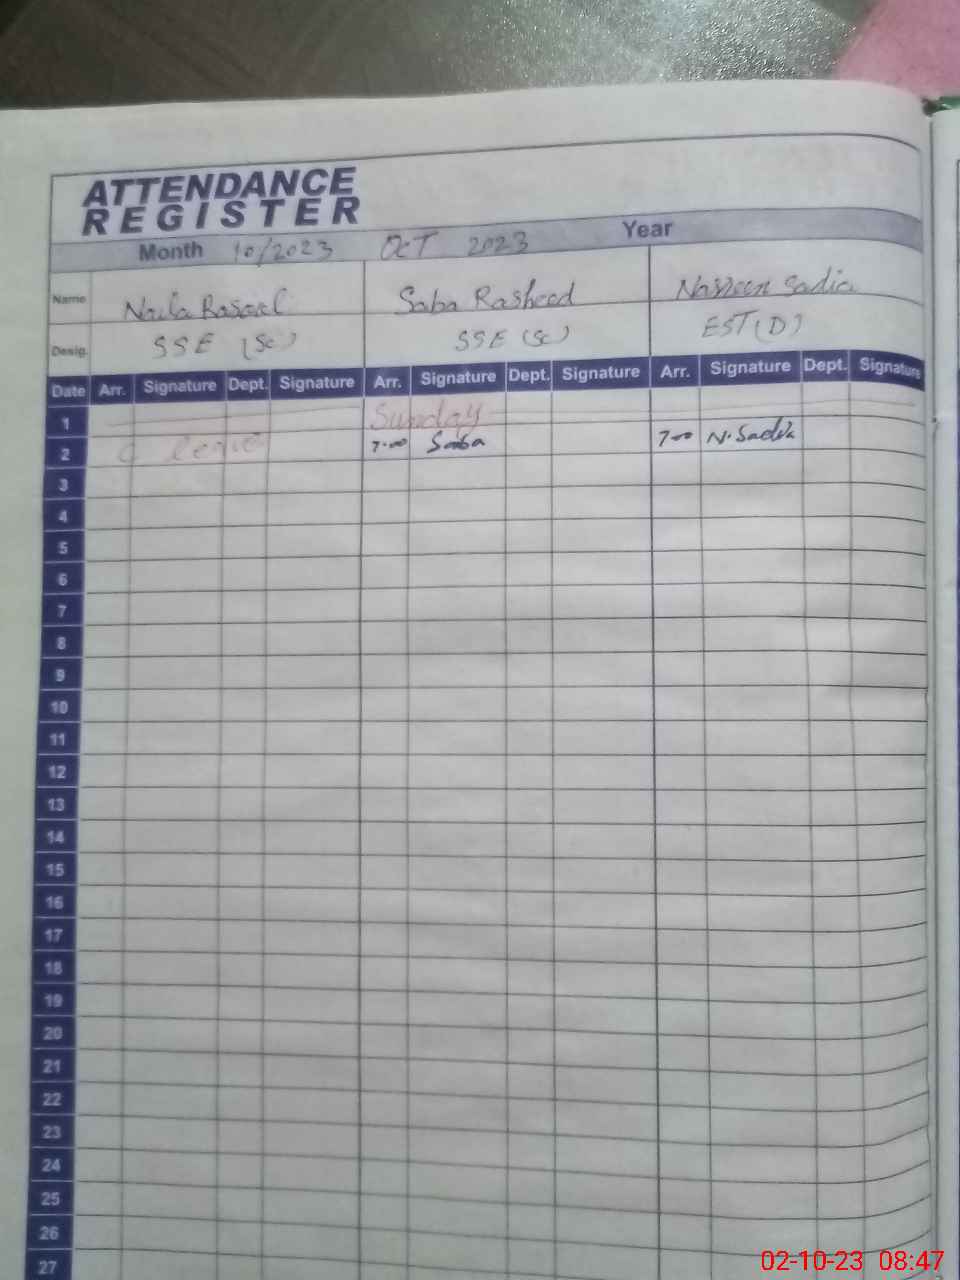 ATTENDANCE
REGISTER
Month 10/2023 OCT 2023 Year
Name Naila Saba Rasheed Nasreen Sadia
Desig. SSE (Sc) SSE (Sc) EST (D)
Date Arr. Signature Dept. Signature Arr. Signature Dept. Signature Arr. Signature Dept. Signature
1 Sunday
2 C leave 7-00 Saba 7-00 N.Sadia
3
4
5
6
7
8
9
10
11
12
13
14
15
16
17
18
19
20
21
22
23
24
25
26
27
02-10-23 08:47